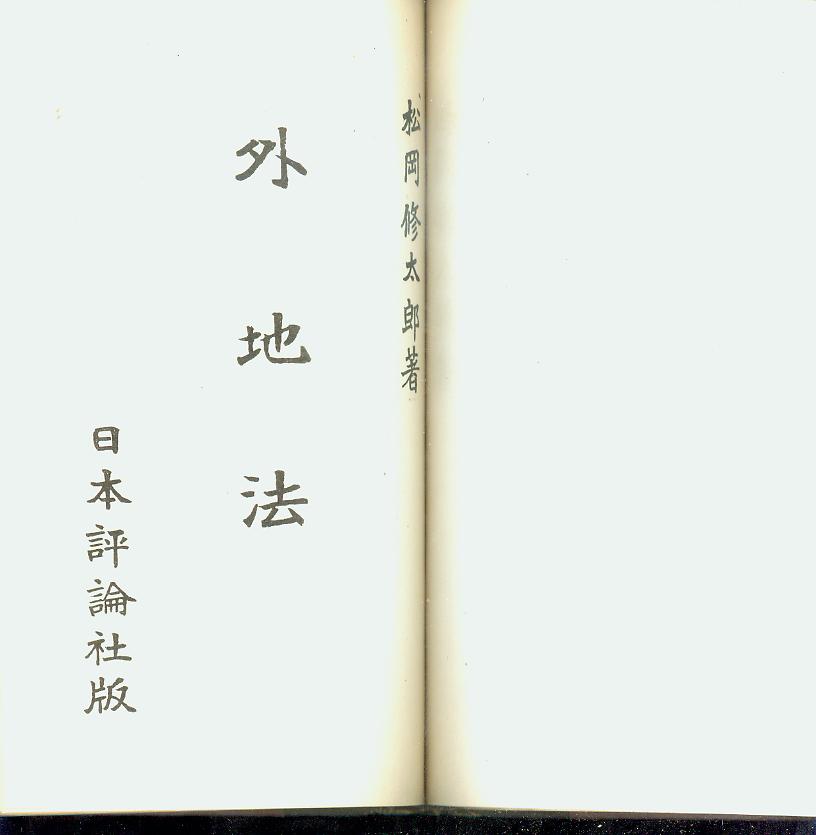 松岡修太郎著
外地法
日本評論社版